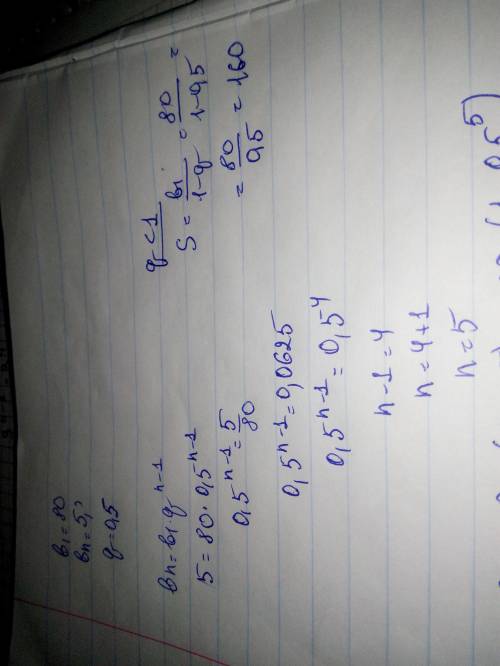 b₁=80
bn=5;
q=0,5
bn=b₁·qⁿ⁻¹
5=80·0,5ⁿ⁻¹
0,5ⁿ⁻¹=5/80
0,5ⁿ⁻¹=0,0625
0,5ⁿ⁻¹=0,5⁻⁴
n-1=4
n=4+1
n=5
q<1
S=b₁/1-q=80/1-0,5=
=80/0,5=160